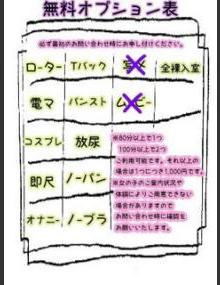 無料オプション表
必ず最初のお問い合わせ時にお申し付けください。
ローター Tバック 全裸入室
電マ パンスト ムービー
コスプレ 放尿
即尺 ノーパン
オナニー ノーブラ
※80分以上で1つ
100分以上で2つ
ご利用可能です。それ以上の
場合は1つにつき1,000円です。
※女の子のご案内状況や
体調によりご用意できない
場合がありますので
お問い合わせ時に確認を
お願いいたします。